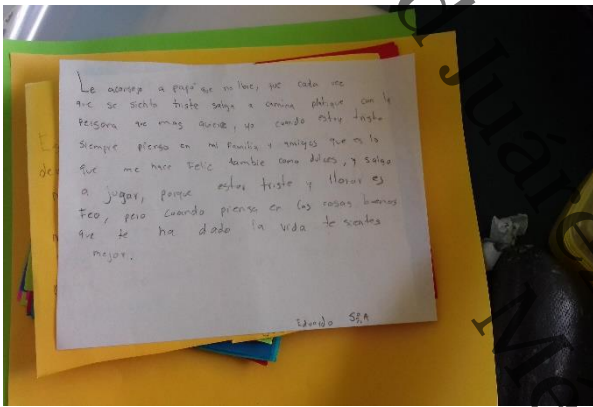 Le aconsejo a papá que no llore, que cada vez
que se sienta triste salga a camina platique con la
persona que mas quiere, yo cuando estoy triste
siempre pienso en mi Familia y amigos que es lo
que me hace Feliz tambie como dulces, y salgo
a jugar, porque estar triste y llorar es
Feo, pero cuando piensa en las cosas buenas
que te ha dado la vida te sientes
mejor.
Eduardo 5º A
d Juáre
Mé